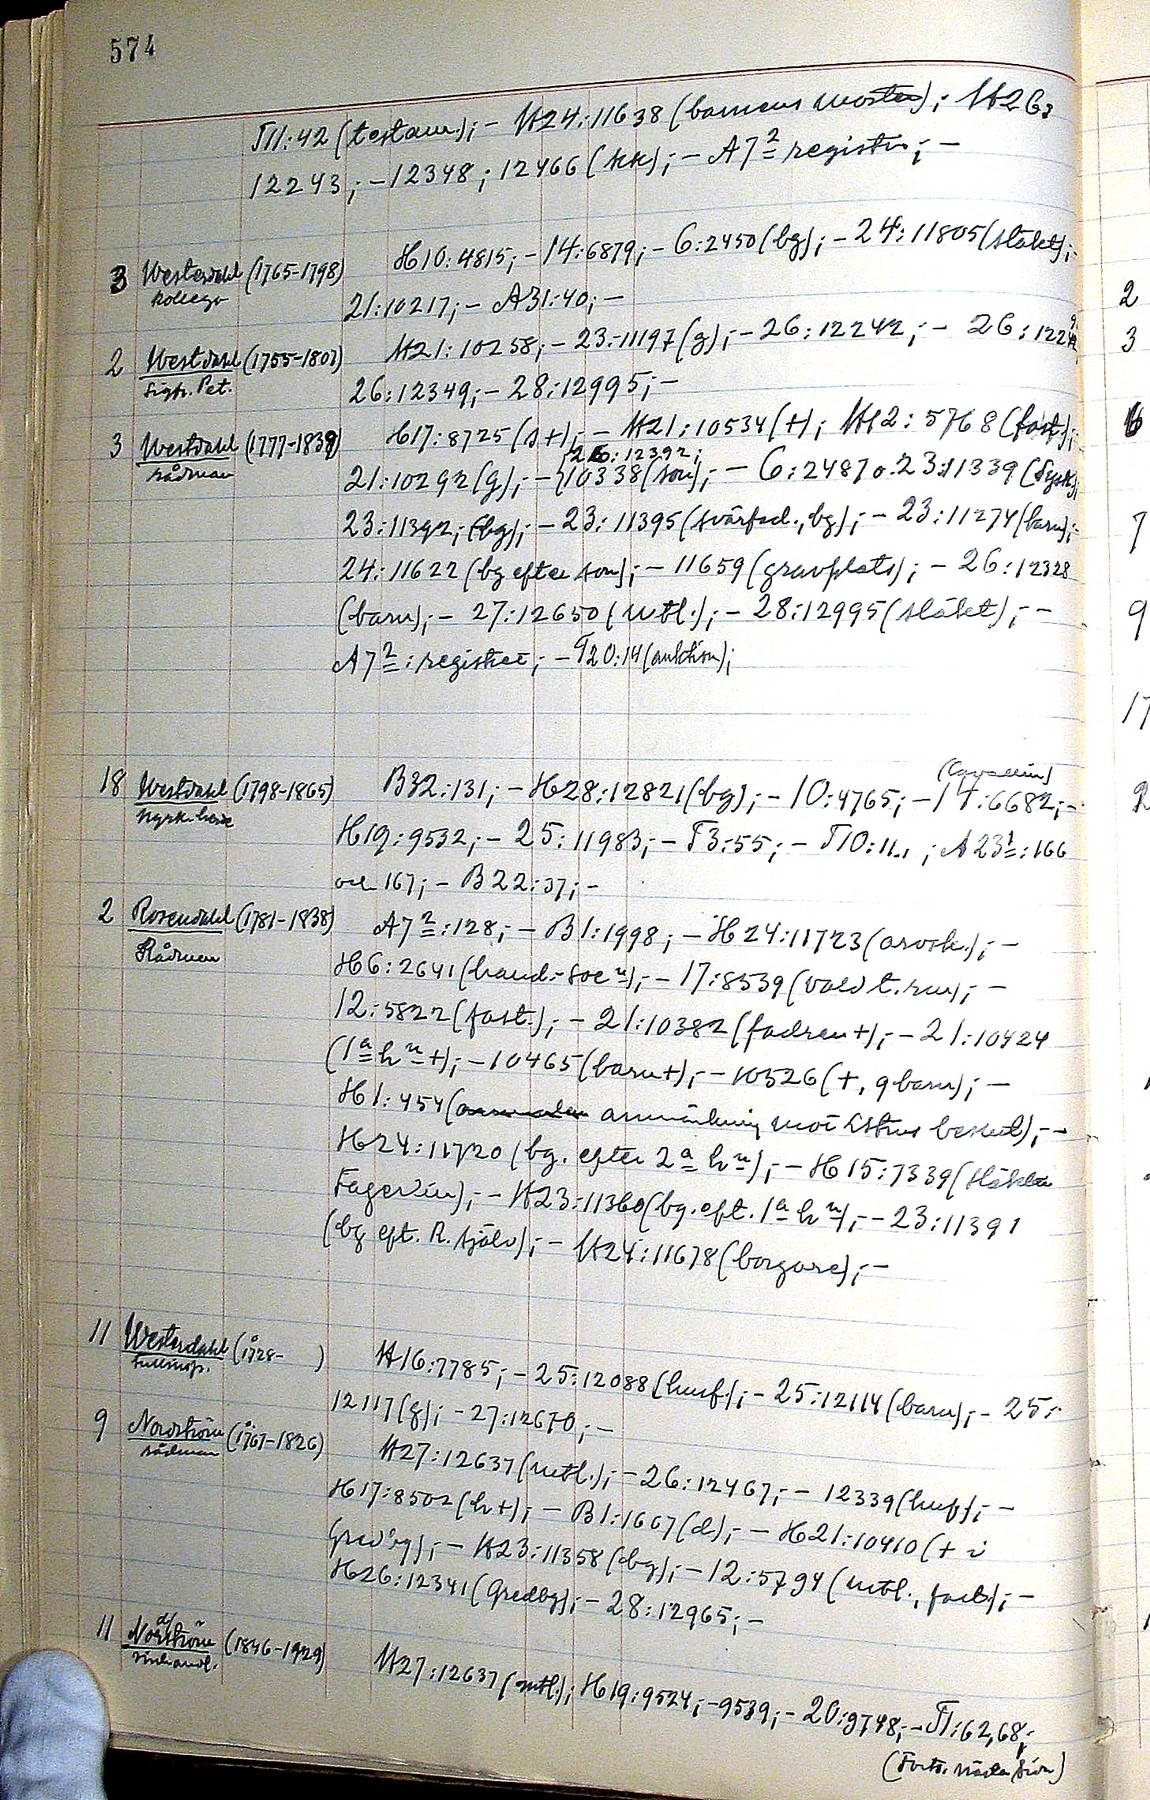 574
T11:42 (testam.);- H24:11638 (barnens moster); H26:
12243;-12348; 12466 (kk);- A7² register;-
3 Westerdahl (1765-1798) H10:4815;-14:6879;-6:2450(bg);-24:11805(släkt);-
kollega
21:10217;- A31:40;-
2 Westdahl (1755-1807) H21:10258;-23:11197(g);-26:12242;- 26:1224
Sigfr. Pet. 26:12349;- 28:12995;-
3 Westdahl (1777-1839) H17:8725(s+);- H21:10534(+); H12:5768(fast.);
rådman
26:12392;
21:10292(g);-10338(son);- 6:2487 o. 23:11339
23:11392;(bg);-23:11395(svärfad., bg);-23:11274(barn);-
24:11622(bg efter son);-11659(gravplats);-26:12328
(barn);-27:12650(utl.);-28:12995(släkt);--
A7²:register;-T20:14(auktion);
(Cavallin)
18 Westdahl (1798-1865) B32:131;-H28:12821(bg);-10:4765;-14:6682;-
H19:9532;-25:11983;-T3:55;-T10:11.,;A23¹:166
och 167;-B22:37;-
2 Rosendahl (1781-1838) A7²:128;-B1:1998;-H24:11723(arvsk.);-
Rådman
H6:2641(hand.-Socⁿ);-17:8539(vald t. rm);-
12:5822(fast.);-21:10382(fadren+);-21:10424
(1ª hⁿ+);-10465(barn+);-10526(+, 9 barn);-
H1:454( anmärkning mot beslut);--
H24:11720(bg. efter 2ª hⁿ);-H15:7339(släkten
Fagerlin);-H23:11360(bg. eft. 1ª hⁿ);-23:11391
(bg eft. R. själv);-H24:11678(borgare);-
11 Westerdahl (1728- ) H16:7785;-25:12088(husf);-25:12114(barn);-25:
12117(g);-27:12670;-
9 Nordström (1767-1826) H27:12637(utl.);-26:12467;-12339(husf);-
rådman
H17:8502(h+);-B1:1667(d);-H21:10410(+ i
Gredby);-H23:11358(bg);-12:5794(utl., fast);-
H26:12341(Gredby);-28:12965;-
11 Nordström (1846-1929) H27:12637(utl.);H19:9524;-9539;-20:9748;-T1:62,68;
vinhandl.
(Forts. nästa sida)
2
3
6
7
9
17
2